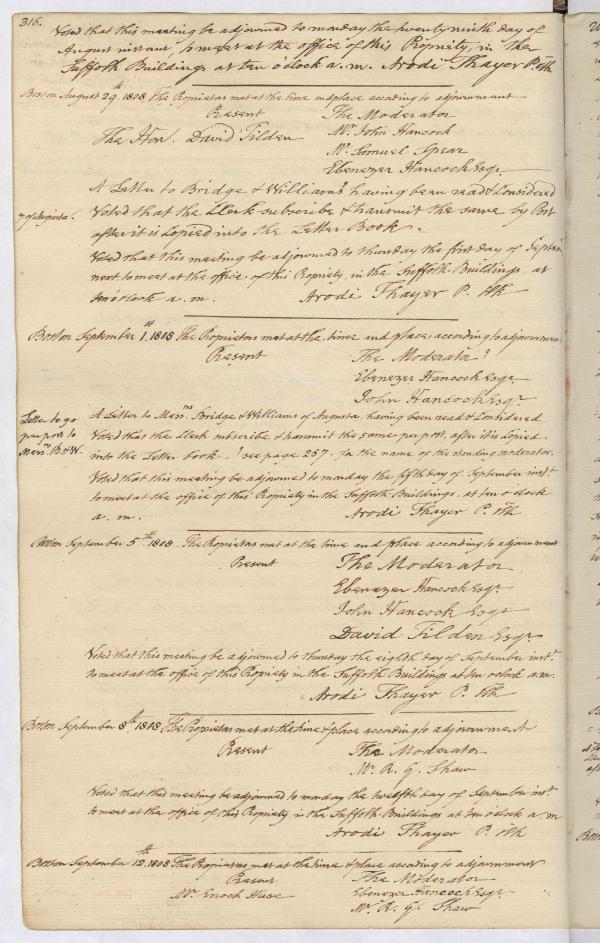 316.
Voted that this meeting be adjourned to monday the twenty ninth day of
August instant, to meet at the office of this Propriety, in the
Suffolk Buildings at ten o'clock a.m. Arodi Thayer P. Clk
Boston August 29.th 1808 The Proprietors met at the time and place according to adjournment
Present The Moderator
The Hon. David Tilden Mr. John Hancock
Mr. Samuel Spear
Ebenezer Hancock Esqr.
A Letter to Bridge & Williams having been read & Considered
of Augusta. Voted that the Clerk subscribe & transmit the same by Post
after it is Copied into the Letter Book.
Voted that this meeting be adjourned to thursday the first day of Septem
next to meet at the office of this Propriety, in the Suffolk Buildings at
ten o'clock a.m. Arodi Thayer P. Clk
Boston September 1.st 1808 The Proprietors met at the time and place according to adjournment
Present The Moderator
Ebenezer Hancock Esqr.
John Hancock Esqr.
Letter to go A Letter to Messrs. Bridge & Williams of Augusta, having been read & Considered
per post to Voted that the Clerk subscribe & transmit the same per post, after it is Copied
Messrs. B. & W. into the Letter book. see page 257. for the name of the standing moderator.
Voted that this meeting be adjourned to monday the fifth day of September inst.
to meet at the office of this Propriety in the Suffolk Buildings, at ten o clock
a.m. Arodi Thayer P. Clk
Boston September 5.th 1808. The Proprietors met at the time and place according to adjournment
Present The Moderator
Ebenezer Hancock Esqr.
John Hancock Esqr
David Tilden Esqr.
Voted that this meeting be adjourned to thursday the eighth day of September inst.
to meet at the office of this Propriety in the Suffolk Buildings at ten o clock a.m.
Arodi Thayer P. Clk
Boston September 8.th 1808 The Proprietors met at the time & place according to adjournment
Present The Moderator
Mr. R. G. Shaw
Voted that this meeting be adjourned to monday the twelfth day of September inst.
to meet at the office of this Propriety, in the Suffolk Buildings at ten o'clock a.m
Arodi Thayer P. Clk
Boston September 12.th 1808 The Proprietors met at the time & place according to adjournment
Present The Moderator
Mr. Enoch Huse Ebenezer Hancock Esqr.
Mr. R. G. Shaw